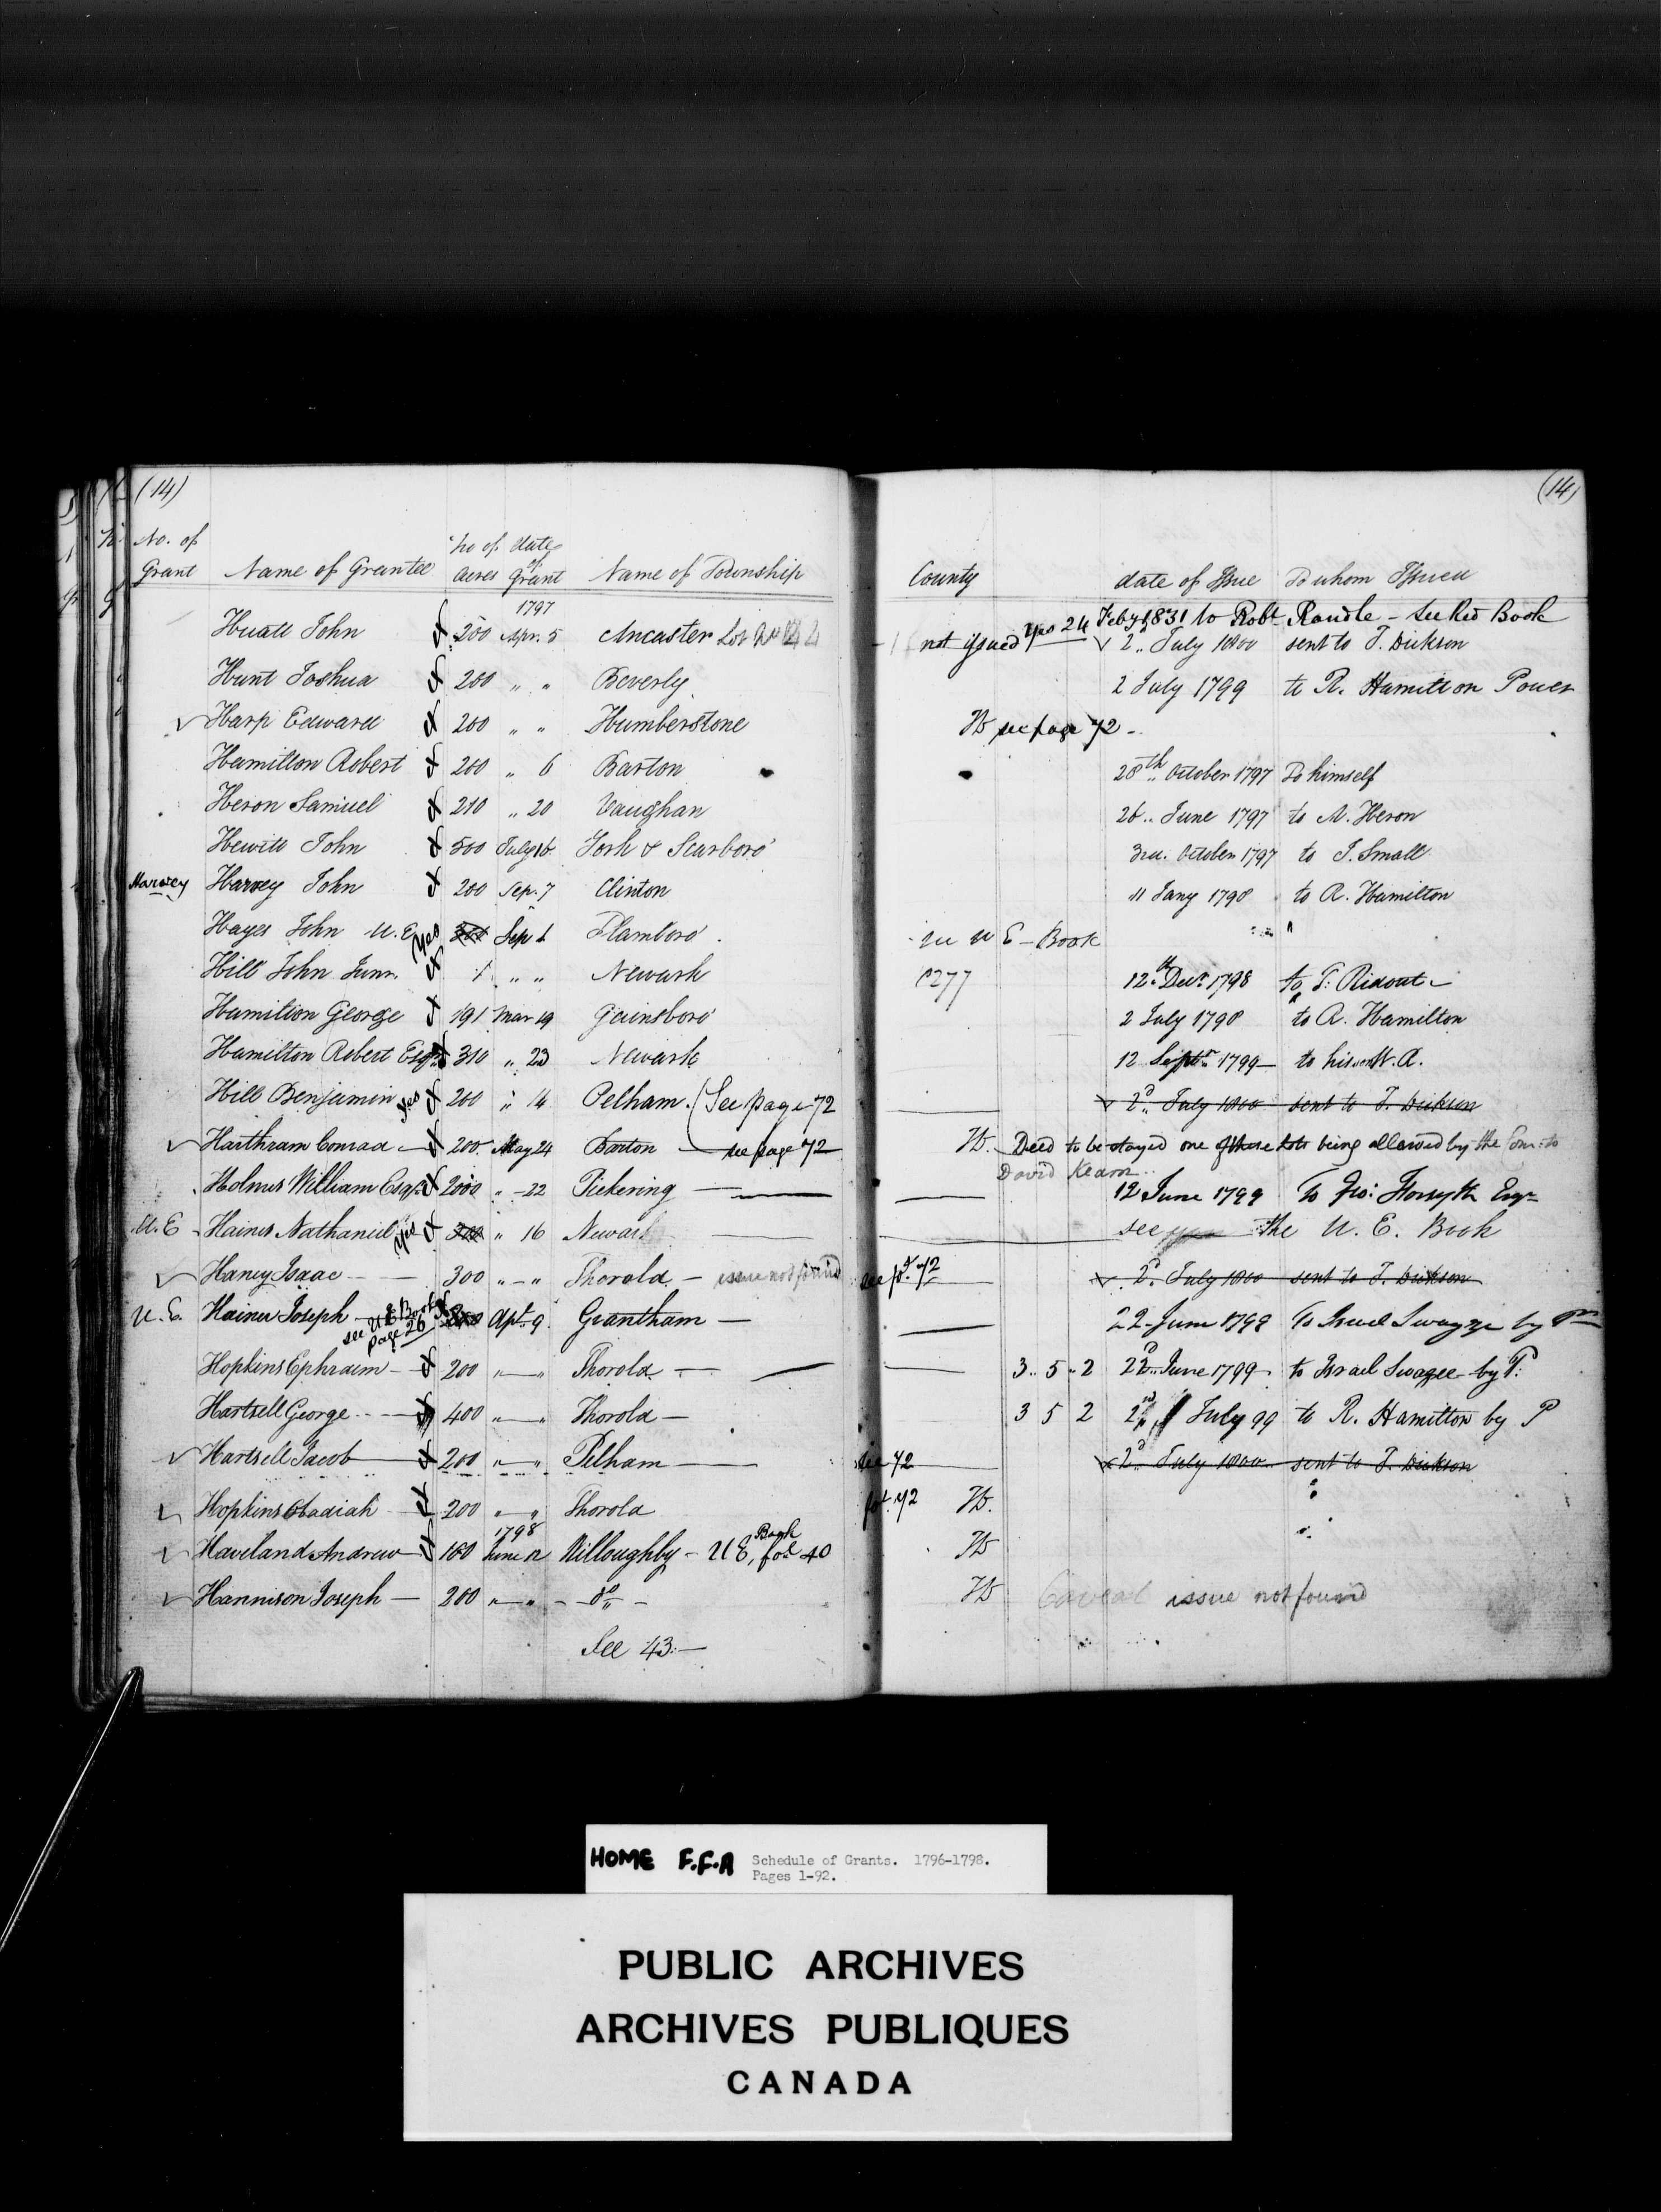 (14)
No. of Grant Name of Grantee No of Acres date of Grant Name of Township
1797
Huatt John 200 Apr. 5 Ancaster Lot
Hunt Joshua 200 " " Beverly
Harp Edward 200 " " Humberstone
Hamilton Robert 200 " 6 Barton
Heron Samuel 210 " 20 Vaughan
Hewitt John 500 July 16 York & Scarboro'
Harvey Harvey John 200 Sep. 7 Clinton
Hayes John U.E Yes Sep 1 Flamboro'
Hill John Junr. 1 " " Newark
Hamilton George 191 Mar 19 Gainsboro'
Hamilton Robert Esqr. 310 " 23 Newark
Hill Benjamin Yes 200 " 14 Pelham (See page 72
Harthram Conrad 200 May 24 Barton — see page 72
Holmes William Esqr. 2000 " -22 Pickering —
U.E Haines Nathaniel Yes 200 " 16 Newark
Haney Isaac 300 " — " Thorold — issue not found
U.E. Hainer Joseph see U E Book page 26 Apl. 9 Grantham —
Hopkins Ephraim — 200 " — " Thorold —
Hartsell George 400 " — " Thorold —
Hartsell Jacob 200 " — " Pelham —
Hopkins Obadiah 200 " — " Thorold
1798
Haveland Andrew 160 June 12 Willoughby — U E Book, fol 40
Hannison Joseph — 200 " — " — do —
See 43 —
(14)
County date of Issue To whom Issued
Yes 24 Feby 1831 to Robt Randle — see Red Book
not issued 2 July 1800 sent to T. Dickson
2 July 1799 to R. Hamilton Power
see page 72 —
28th October 1797 To himself
26 June 1797 to M. Heron
3rd. October 1797 to J. Small
11 Jany 1798 to R. Hamilton
see U E — Book " "
277 12th Decr 1798 to T: Ridout —
2 July 1798 to R. Hamilton
12 Septr 1799 — to his W. A.
2d July 1800 sent to T. Dickson
Deed to be stayed one of these Lots being allowed by the Com: to
David Kearn
12 June 1799 To Jno: Forsyth Esqr
see the U. E. Book
see fo 72 2d July 1800 sent to T. Dickson
22 June 1799 To Israel Swayze by
3 " 5 " 2 22 June 1799 to Israel Swazee — by P:
3 5 2 2nd July 99 to R. Hamilton by P
see 72 2d July 1800 sent to T. Dickson
fol. 72
Caveat issue not found
HOME F.F.A Schedule of Grants. 1796-1798.
Pages 1-92.
PUBLIC ARCHIVES
ARCHIVES PUBLIQUES
CANADA